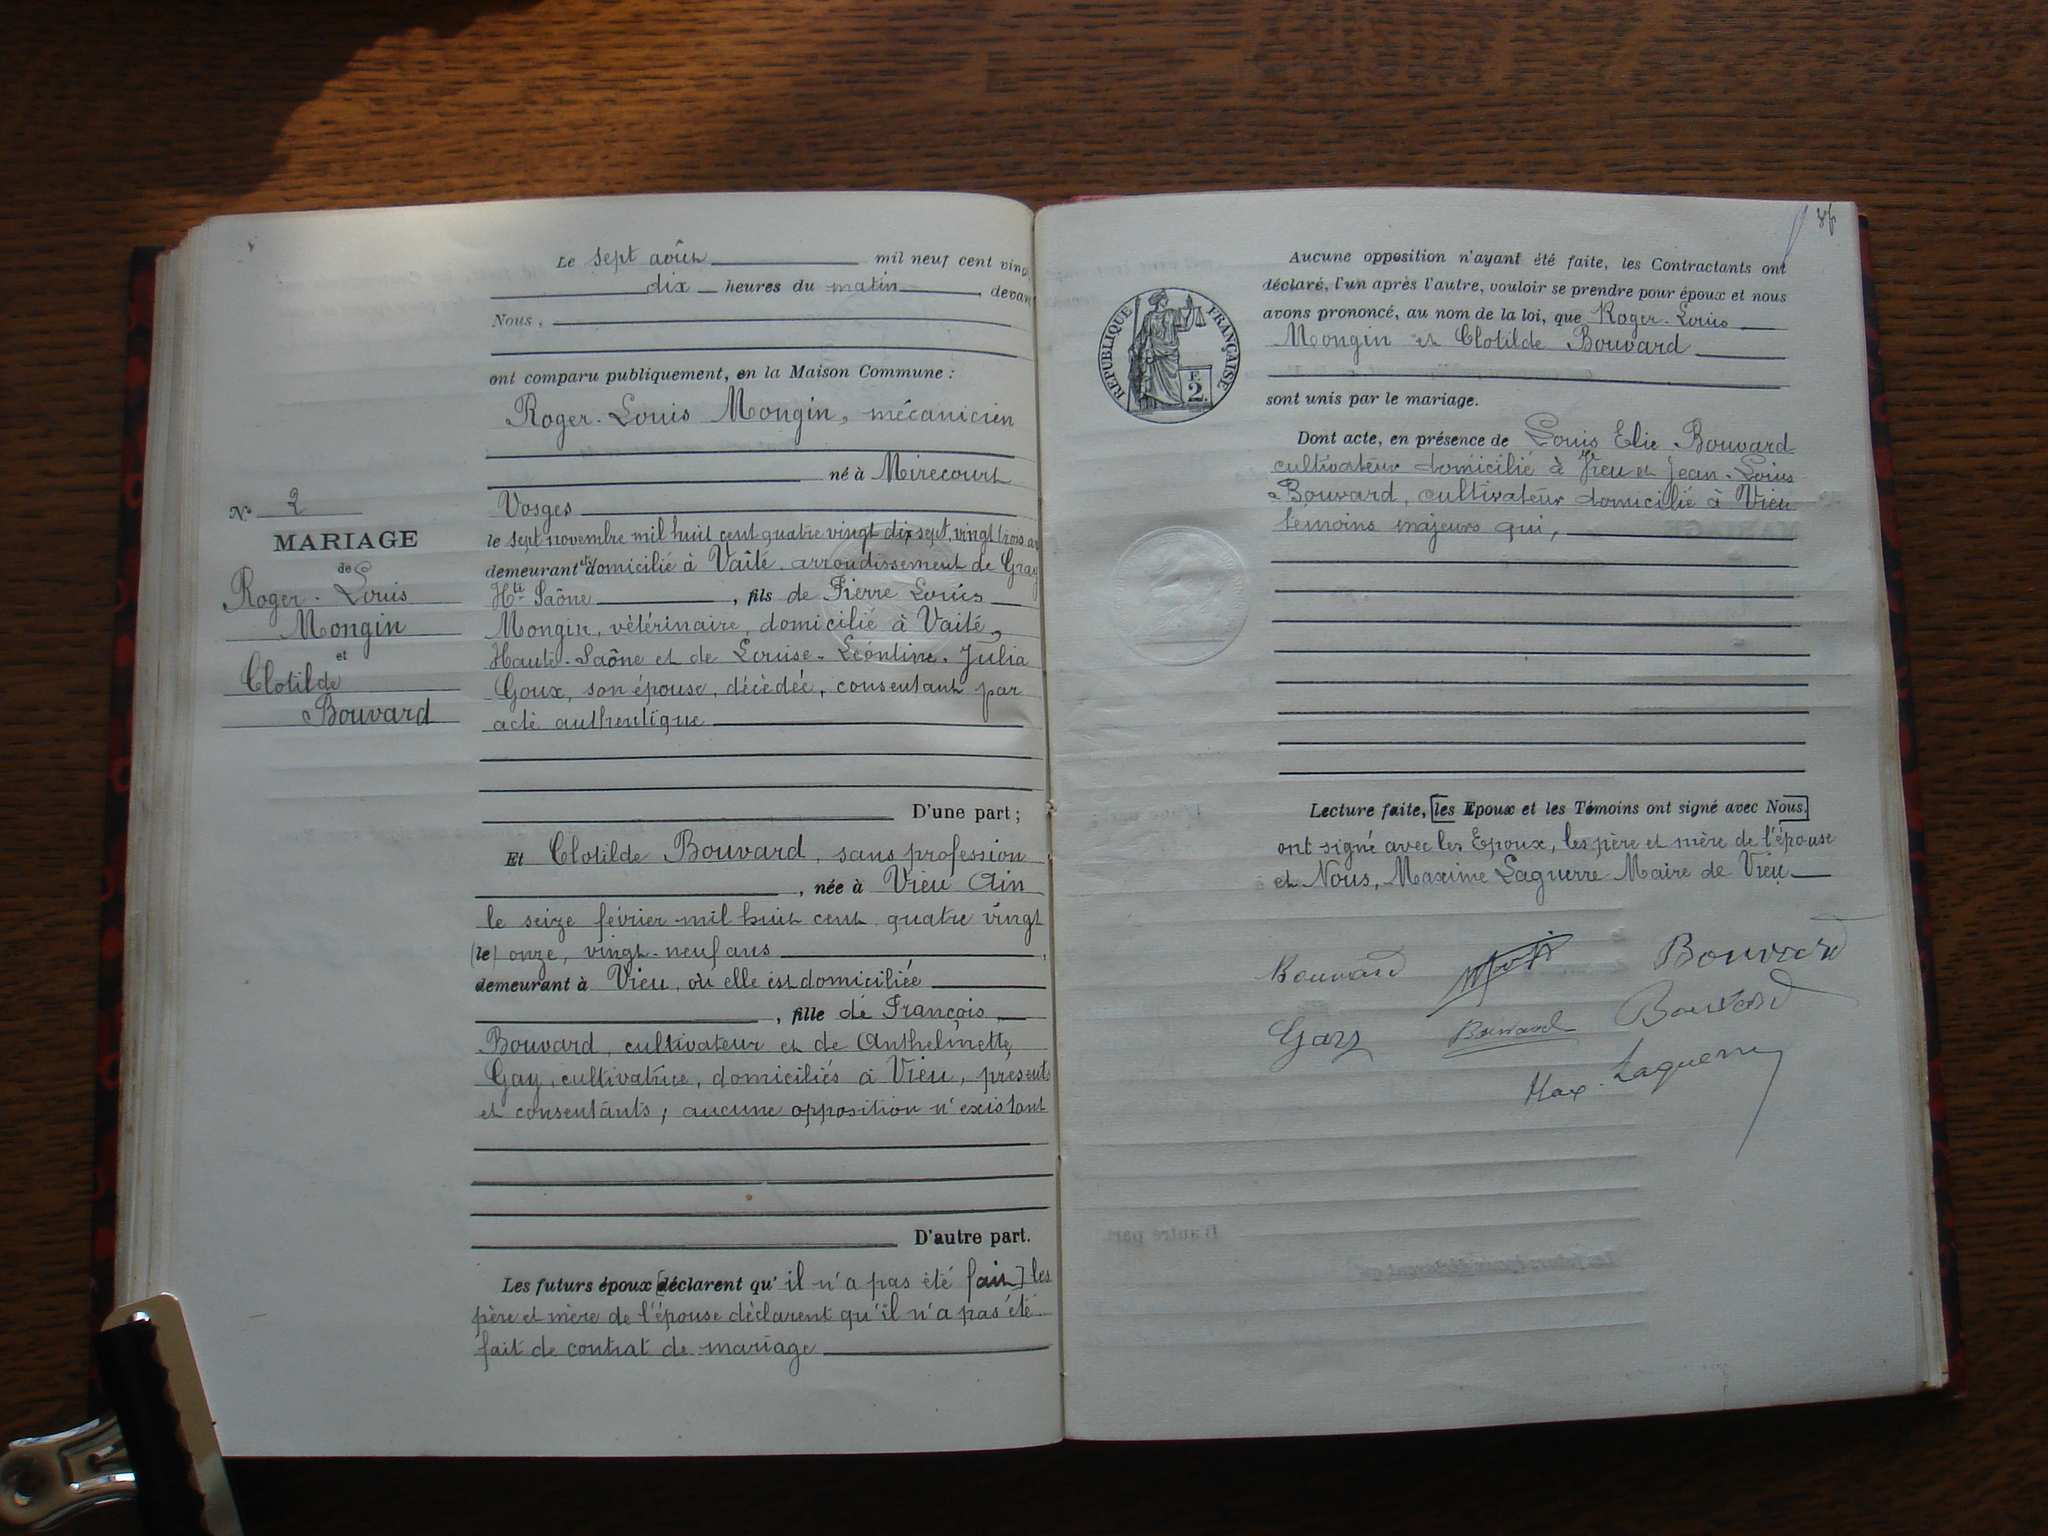 Le sept août mil neuf cent vingt
dix heures du matin, devant
Nous,
ont comparu publiquement, en la Maison Commune :
Roger-Louis Mongin, mécanicien
né à Mirecourt
Vosges
le sept novembre mil huit cent quatre vingt dix sept, vingt trois an
demeurant et domicilié à Vaîté, arrondissement de Gray
Hte Saône, fils de Pierre Louis
Mongin, vétérinaire, domicilié à Vaité,
Haute-Saône et de Louise-Léontine-Julia
Goux, son épouse, décédée, consentant par
acte authentique
D'une part ;
Et Clotilde Bouvard, sans profession
, née à Vieu Ain
le seize février mil huit cent quatre vingt
(le) onze, vingt-neuf ans
demeurant à Vieu, où elle est domiciliée
, fille de François
Bouvard, cultivateur et de Anthelmette
Gay, cultivatrice, domiciliés à Vieu, présents
et consentants, aucune opposition n'existant
D'autre part.
Les futurs époux [déclarent qu'il n'a pas été fait] les
père et mère de l'épouse déclarent qu'il n'a pas été
fait de contrat de mariage
N° 2
MARIAGE
de
Roger-Louis
Mongin
et
Clotilde
Bouvard
RÉPUBLIQUE FRANÇAISE
F.
2.
Aucune opposition n'ayant été faite, les Contractants ont
déclaré, l'un après l'autre, vouloir se prendre pour époux et nous
avons prononcé, au nom de la loi, que Roger-Louis
Mongin et Clotilde Bouvard
sont unis par le mariage.
Dont acte, en présence de Louis Elie Bouvard
cultivateur domicilié à Vieu et Jean-Louis
Bouvard, cultivateur domicilié à Vieu
témoins majeurs qui,
Lecture faite, [les Epoux et les Témoins ont signé avec Nous.]
ont signé avec les Epoux, les père et mère de l'épouse
et Nous, Maxime Laguerre Maire de Vieu
Bouvard
Bouvard
Gay
Bouvard
Bouvard
Max. Laguerre